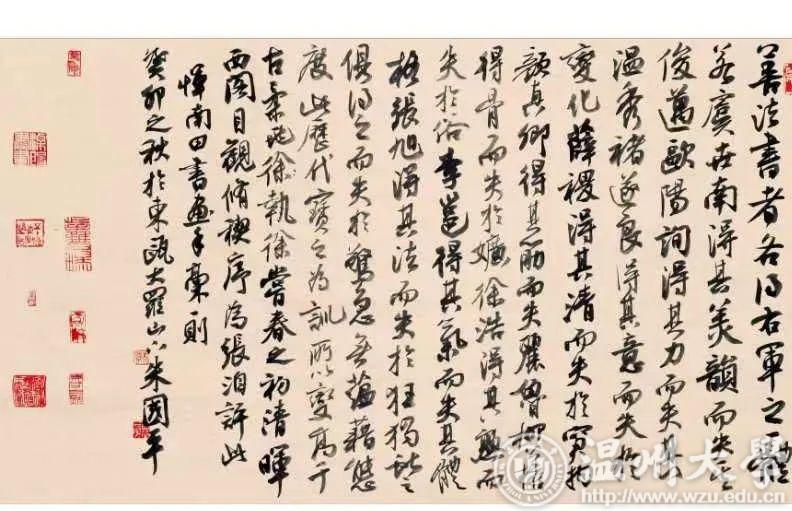 善法書者各得右軍之一體
若虞世南得其美韻而失其
俊邁歐陽詢得其力而失其
溫秀褚遂良得其意而失於
變化薛稷得其清而失於窘拘
顏真卿得其筋而失麤魯柳
得骨而失於獷徐浩得其肉而
失於俗李邕得其氣而失其體
格張旭得其法而失於狂獨獻之
俱得之而失於驚急無蘊藉態
度此歷代寶之為訓所以夐高千
古柔兆徐執徐嘗春之初清暉
西閣目觀脩禊序為張洎評此
惲南田書畫手稾一則
癸卯之秋於東甌大羅山下朱國平
温州大學
http://www.wzu.edu.cn